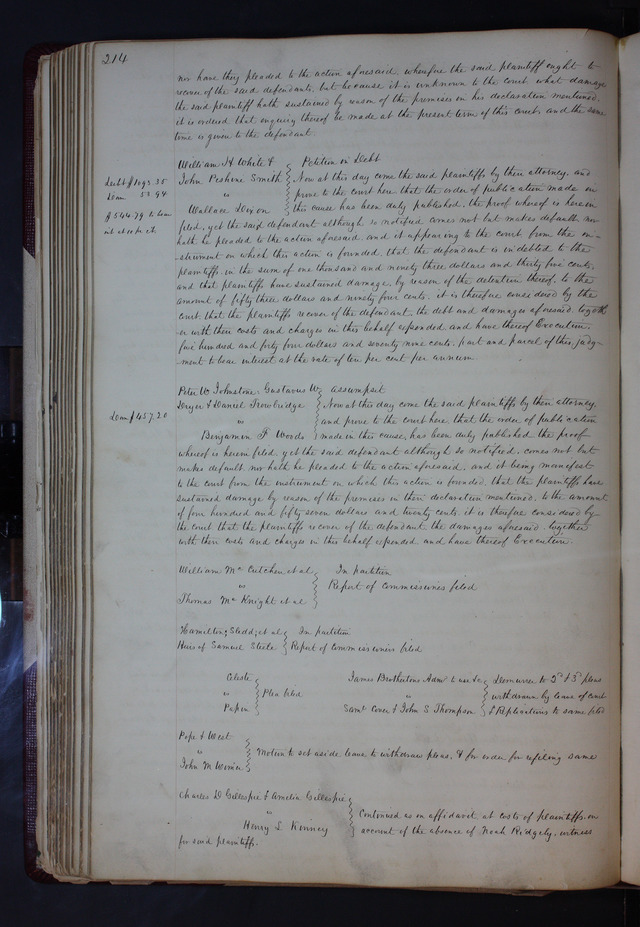 214
nor have they pleaded to the action aforesaid, wherefore the said plaintiff ought to
recover of the said defendants, but because it is unknown to the court what damage
the said plaintiff hath sustained by reason of the premises in his declaration mentioned,
it is ordered that enquiry thereof be made at the present term of this court, and the same
time is given to the defendant.
William H White &
John Peshine Smith
"
Wallace Dixon
Petition in Debt
Debt $1093.35
Dam 53.94
$544.79 to bear
int at 10 pr ct.
Now at this day come the said plaintiffs by their attorney, and
prove to the court here that the order of publication made in
this cause has been duly published, the proof whereof is herein
filed, yet the said defendant although so notified comes not but makes default, nor
hath he pleaded to the action aforesaid, and it appearing to the court from the in-
-strument on which this action is founded, that the defendant is indebted to the
plaintiffs, in the sum of one thousand and ninety three dollars and thirty five cents,
and that plaintiffs have sustained damage, by reason of the detention thereof, to the
amount of fifty three dollars and ninety four cents, it is therefore considered by the
court that the plaintiffs recover of the defendant, the debt and damages aforesaid, togeth-
er with their costs and charges in this behalf expended and have thereof Execution.
five hundred and forty four dollars and seventy nine cents, part and parcel of this judg-
-ment to bear interest at the rate of ten per cent per annum
Peter W Johnstone, Gustavus W
Dryer & Daniel Trowbridge
"
Benjamin F Woods
Assumpsit
Dam $457.20
Now at this day come the said plaintiffs by their attorney,
and prove to the court here that the order of publication
made in this cause, has been duly published the proof
whereof is herein filed, yet the said defendant although so notified, comes not but
makes default, nor hath he pleaded to the action aforesaid, and it being manifest
to the court from the instrument on which this action is founded, that the plaintiffs have
sustained damage by reason of the premises in their declaration mentioned, to the amount
of four hundred and fifty seven dollars and twenty cents it is therefore considered by
the court that the plaintiffs recover of the defendant, the damages aforesaid, together
with their costs and charges in this behalf expended and have thereof Execution.
William Mc Cutchen et al
"
Thomas Mc Knight et al
In partition
Report of Commissioners filed
Hamilton; Sledd; et al
Heirs of Samuel Steele
In partition
Report of Commissioners filed
Celeste
"
Papin
Plea filed
James Brothertons Adm to use &c
"
Saml Coner & John S Thompson
Demurrer to 2d & 3d pleas
withdrawn by leave of court
& Replications to same filed
Pope & West
"
John M Wimer
Motion to set aside leave to withdraw pleas, & for order for refiling same
Charles D Gillespie & Amelia Gillespie
"
Henry L Kinney
Continued as on affidavit at costs of plaintiffs, on
account of the absence of Noah Ridgely, witness
for said plaintiffs.